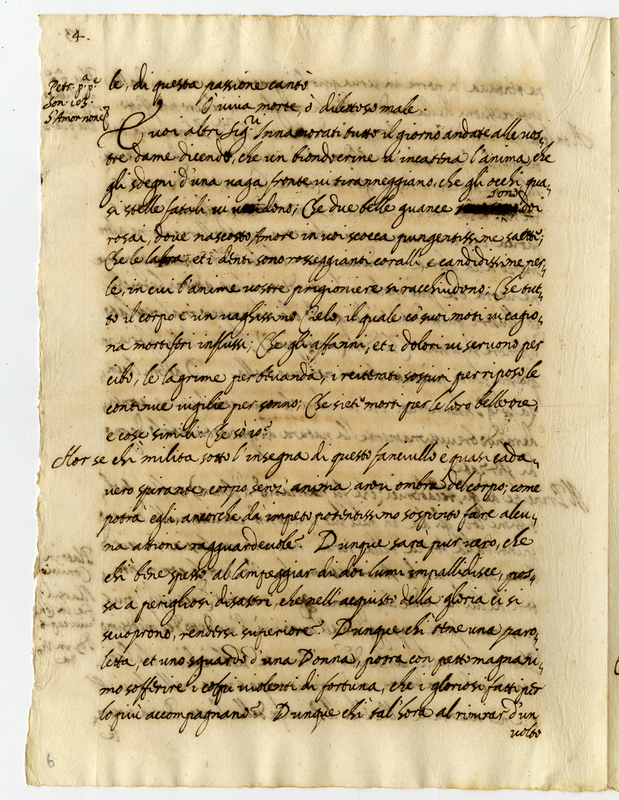 4.
le, di questa passione cantò
Petr. p.a p.e
Son. 103.
S'Amor non è
O viva morte, ò dilettoso male.
E voi altri Sig.ri Innamorati tutto il giorno andate alle vos-
tre dame dicendo, che un biondo crine vi incatena l'anima, che
gli sdegni d'una vaga fronte vi tiranneggiano, che gli occhi qua-
si stelle fatali vi dono; Che due belle guance sono doi
rosai, dove nascosto Amore in voi scocca pungentissime saette;
Che le labra, et i denti sono rosseggianti coralli, e candidissime per-
le, in cui l'anime vostre prigioniere si racchiudono; Che tut-
to il corpo è un vaghissimo Cielo, il quale co suoi moti vi cagio-
na mortiferi influssi; Che gli affanni, et i dolori vi servono per
cibo, le lagrime per bevanda, i reiterati sospiri per riposo, le
continue vigilie per sonno; Che siete morti per le loro bellezze,
e cose simili. Che sò io?
Hor se chi milita sotto l'insegna di questo fanciullo è quasi cada-
vero spirante, corpo senz' anima, anzi ombra del corpo; come
potrà egli, ancorche da impeto potentissimo sospinto fare alcu-
na attione ragguardevole? Dunque sarà pur vero, che
chi bene spesso al lampeggiar di doi lumi impallidisce, pos-
sa a perigliosi disastri, che nell'acquisto della gloria ci si
scuoprono, rendersi superiore? Dunque chi teme una paro-
letta, et uno sguardo d'una Donna, potrà con petto magnani-
mo sofferire i colpi violenti di fortuna, che i gloriosi fatti per
lo più accompagnano? Dunque chi tal'hora al rimirar d'un
volto
6